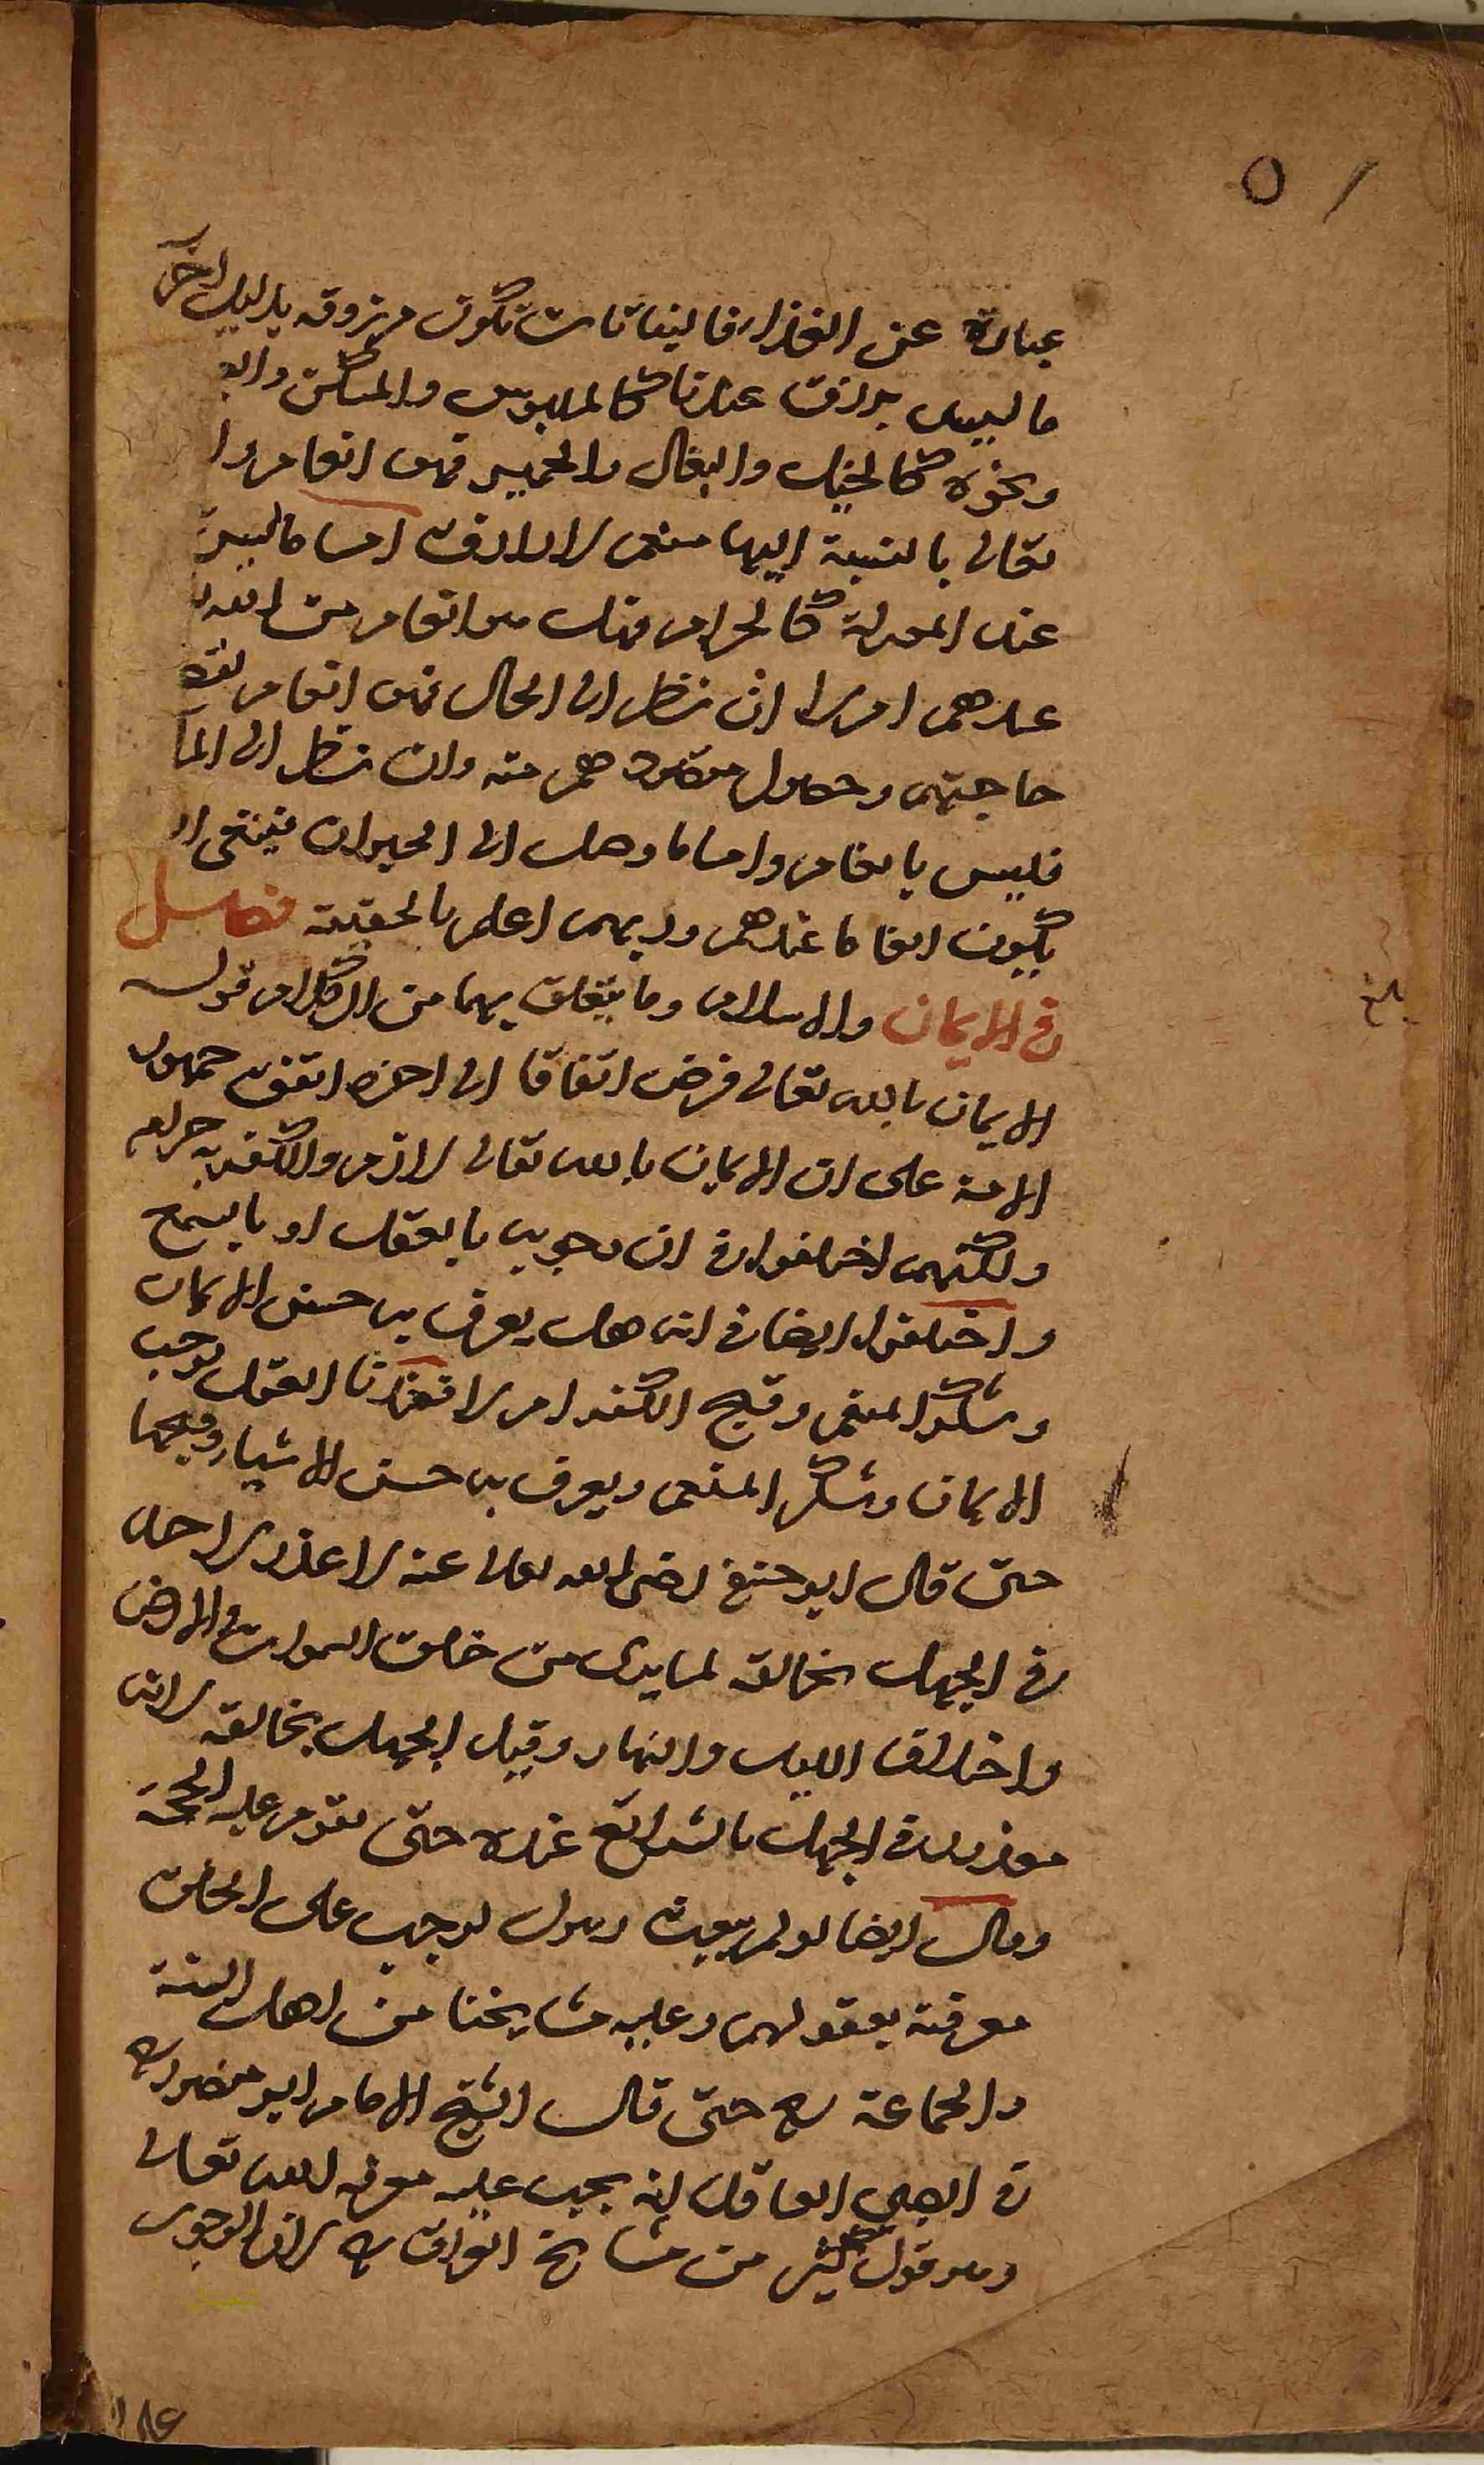 عبارة عن الغذاء فالنباتات تكون مرزوقة بدليل آخر
ما ليس برزق عندنا كالملبوس والمسكن والد
ونحوه كالخيل والبغال والحمير فهو انعام وا
تعالى بالنسبة اليها منعم لا رازق اما ما ليس
عند المعتزلة كالحرام فهل هو انعام من الله
عندهم ام لا ان نظر الى الحال فهو انعام
حاجتهم وحصول مقصودهم منه وان نظر الى المآ
فليس بانعام واما ما وصل الى الحيوان فينبغي ا
يكون انعاما عندهم وربهم اعلم بالحقيقة فصل
في الايمان والاسلام وما يتعلق بهما من الكلام قوله
الايمان بالله تعالى فرض اتفاقا الى اخره اتفق جمهور
الامة على ان الايمان بالله تعالى لازم والكفر به حرام
ولكنهم اختلفوا في ان وجوبه بالعقل او بالسمع
واختلفوا ايضا في انه هل يعرف به حسن الايمان
وشكر المنعم وقبح الكفر ام لا فعندنا العقل يوجب
الايمان وشكر المنعم ويعرف به حسن الاشياء وقبحها
حتى قال ابو حنيفة رضي الله تعالى عنه لا عذر لاحد
في الجهل بخالقه لما يرى من خلق السموات والارض
واختلاف الليل والنهار وقيل الجهل بخالقه لانه
معذور في الجهل بالشرائع عنده حتى تقوم عليه الحجة
وقال ايضا لو لم يبعث رسول لوجب على الخلق
معرفته بعقولهم وعليه مشايخنا من اهل السنة
والجماعة رح حتى قال الشيخ الامام ابو منصور ره
في الصبي العاقل انه يجب عليه معرفة الله تعالى
وهو قول كثير من مشايخ العراق ره لان الوجوب
بلغ